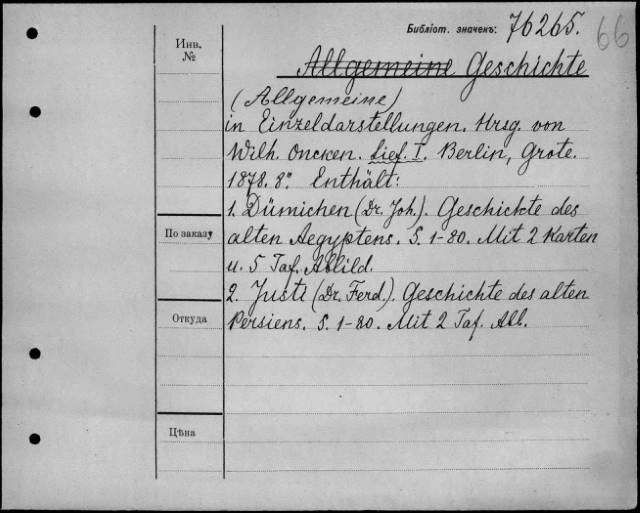 Библіот. значекъ: 76265.
66
Инв.
№
Allgemeine Geschichte
(Allgemeine)
in Einzeldarstellungen. Hrsg. von
Wilh. Oncken. Lief. I. Berlin, Grote.
1878. 8º. Enthält:
1. Dümichen (Dr. Joh.). Geschichte des
По заказу
alten Aegyptens. S. 1-80. Mit 2 Karten
u. 5 Taf. Abbild.
2. Justi (Dr. Ferd.). Geschichte des alten
Откуда
Persiens. S. 1-80. Mit 2 Taf. Abb.
Цѣна